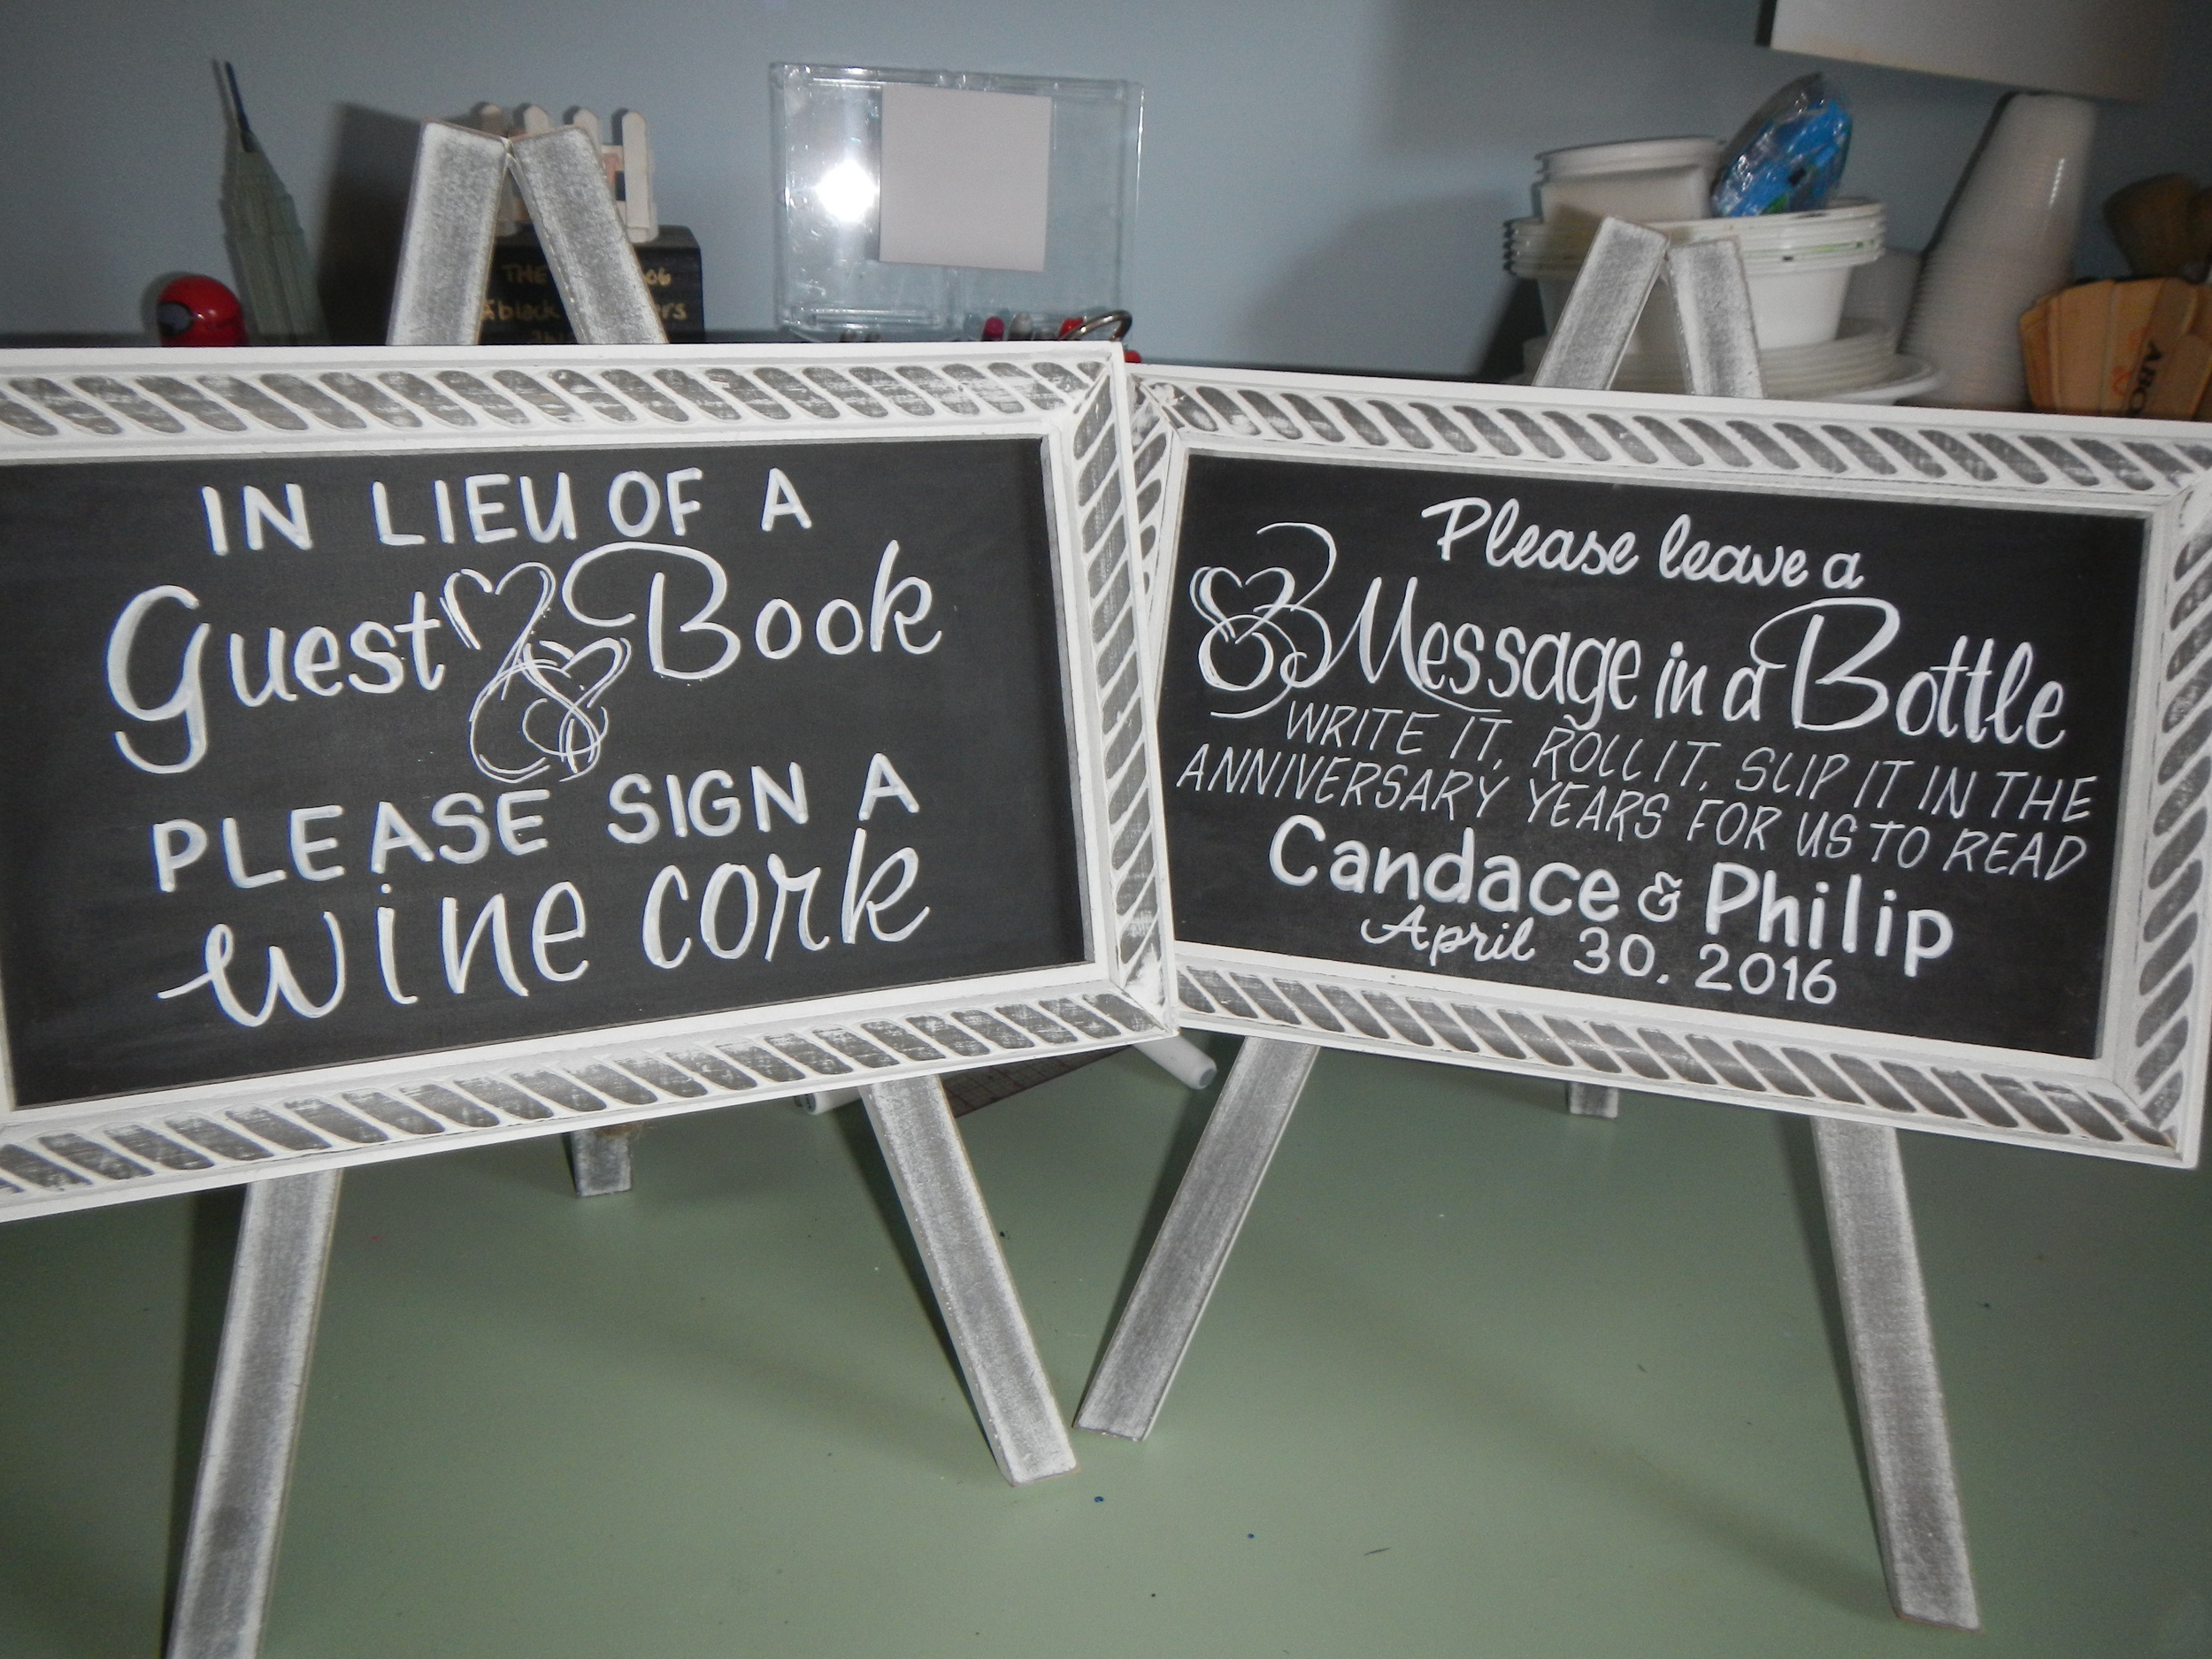 IN LIEU OF A
Guest Book
PLEASE SIGN A
wine cork
Please leave a
Message in a Bottle
WRITE IT, ROLL IT, SLIP IT IN THE
ANNIVERSARY YEARS FOR US TO READ
Candace & Philip
April 30, 2016
THE
black